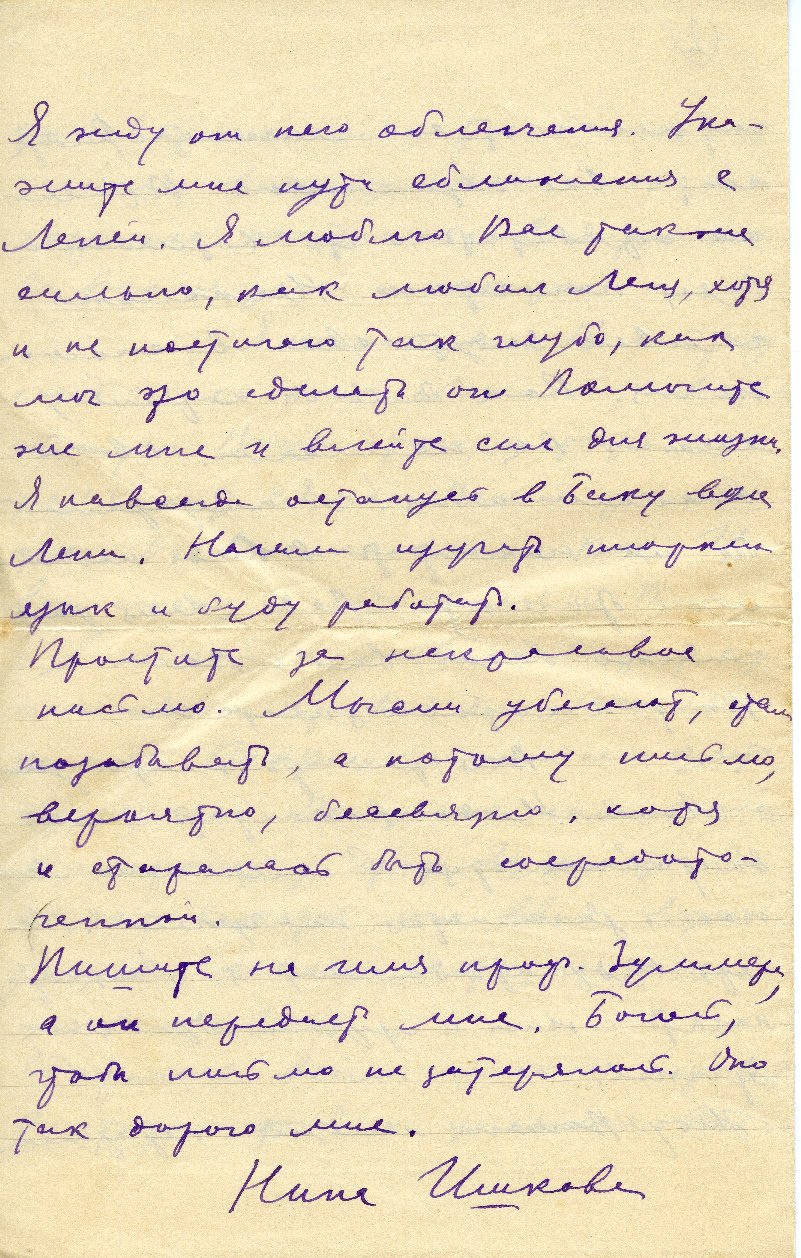 Я жду от него облегчения. Ука-
жите мне пути сближения с
Леней. Я люблю Вас так же
сильно, как любил Леня, хотя
и не постигаю так глубо, как
мог это сделать он. Помогите
же мне и влейте сил для жизни.
Я навсегда останусь в Баку возле
Лени. Начали изучать тюркский
язык и буду работать.
Простите за некрасивое
письмо. Мысли убегают, стала
позабывать, а потому письмо,
вероятно, бессвязно, хотя
и старалась быть сосредото-
ченной.
Пишите на имя проф. Зуммера,
а он передаст мне. Боюсь,
чтобы письмо не затерялось. Оно
так дорого мне.
Нина Ишкова